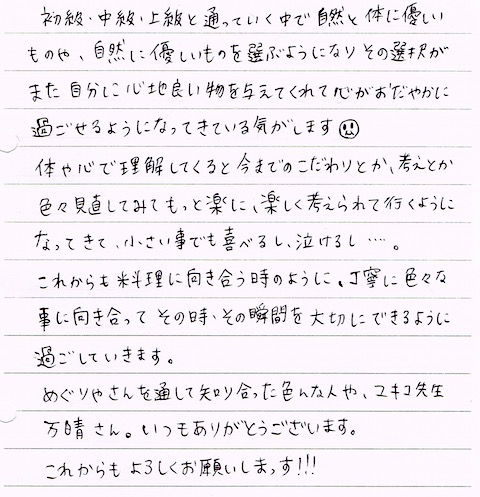 初級・中級・上級と通っていく中で自然と体に優しい
ものや、自然に優しいものを選ぶようになり その選択が
また 自分に心地良い物を与えてくれて心がおだやかに
過ごせるようになってきている気がします
体や心で理解してくると今までのこだわりとか、考えとか
色々見直してみてもっと楽に、楽しく考えられて行くように
なってきて、小さい事でも喜べるし、泣けるし….。
これからも料理に向き合う時のように、丁寧に色々な
事に向き合って その時・その瞬間を大切にできるように
過ごしていきます。
めぐりやさんを通して知り合った色んな人や、マキコ先生
万晴さん。いつもありがとうございます。
これからも よろしくお願いしまっす!!!